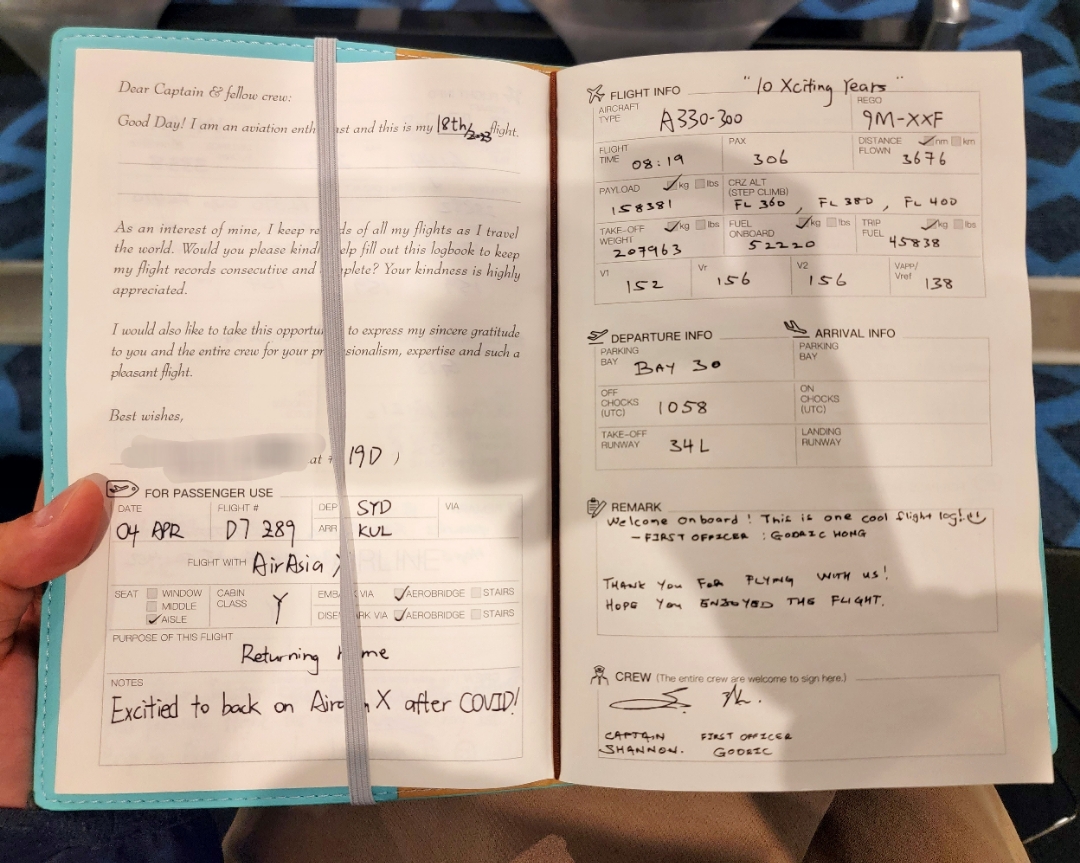 Dear Captain & fellow crew:
Good Day! I am an aviation enth ast and this is my 18th/2023 flight.
As an interest of mine, I keep re ds of all my flights as I travel
the world. Would you please kindl elp fill out this logbook to keep
my flight records consecutive and plete? Your kindness is highly
appreciated.
I would also like to take this opportu to express my sincere gratitude
to you and the entire crew for your pr ssionalism, expertise and such a
pleasant flight.
Best wishes,
at # 19D )
FOR PASSENGER USE
DATE FLIGHT # DEP SYD VIA
04 APR D7 289 ARR KUL
FLIGHT WITH AirAsia X
SEAT WINDOW CABIN CLASS Y EMBA VIA AEROBRIDGE STAIRS
MIDDLE
AISLE DISE RK VIA AEROBRIDGE STAIRS
PURPOSE OF THIS FLIGHT
Returning h me
NOTES
Excitied to back on Aira X after COVID!
"10 Xciting Years"
FLIGHT INFO
AIRCRAFT TYPE A330-300 REGO 9M-XXF
FLIGHT TIME 08:19 PAX 306 DISTANCE FLOWN nm km 3676
PAYLOAD kg lbs 158381 CRZ ALT (STEP CLIMB) FL 360, FL 380, FL 400
TAKE-OFF WEIGHT kg lbs 207963 FUEL ONBOARD kg lbs 52220 TRIP FUEL kg lbs 45838
V1 152 Vr 156 V2 156 VAPP/Vref 138
DEPARTURE INFO ARRIVAL INFO
PARKING BAY BAY 30 PARKING BAY
OFF CHOCKS (UTC) 1058 ON CHOCKS (UTC)
TAKE-OFF RUNWAY 34L LANDING RUNWAY
REMARK
Welcome onboard! This is one cool flight log!
- FIRST OFFICER : GODRIC HONG
THANK YOU FOR FLYING WITH US!
HOPE YOU ENJOYED THE FLIGHT.
CREW (The entire crew are welcome to sign here.)
CAPTAIN FIRST OFFICER
SHANNON. GODRIC